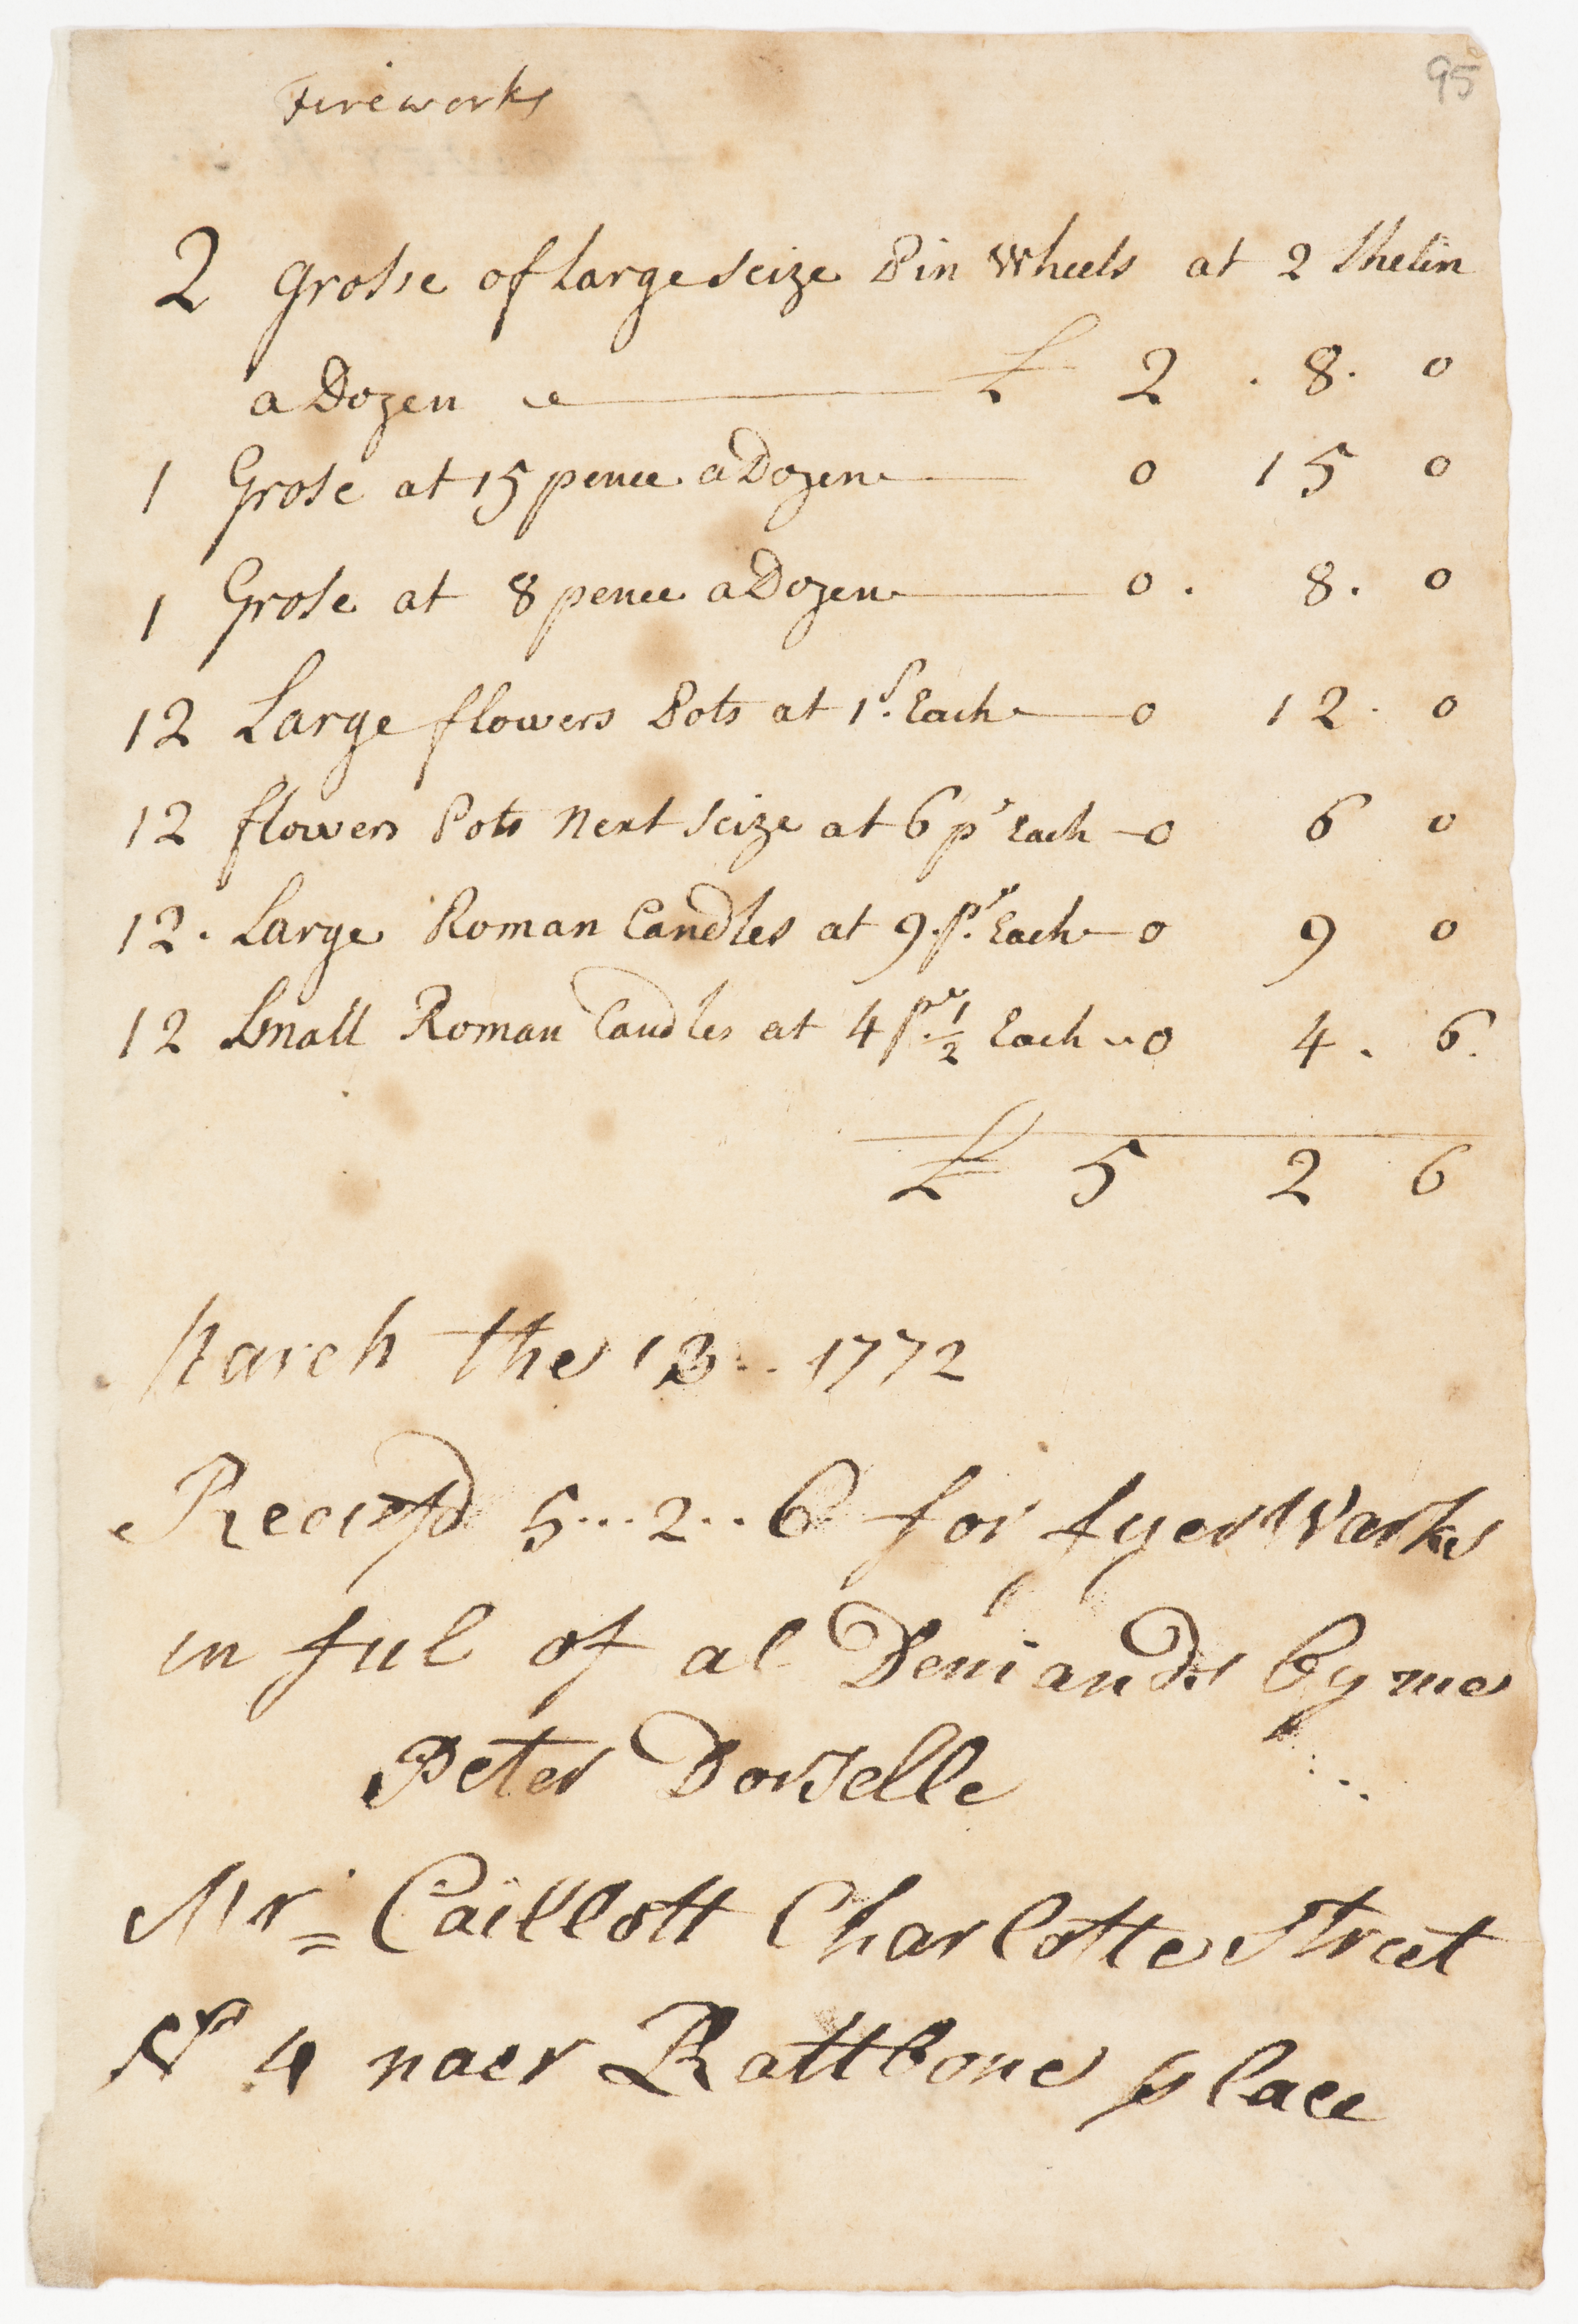 95
Fireworks
2 Grosse of large seize Pin Wheels at 2 Shelin
a Dozen £ 2 . 8 . 0
1 Grose at 15 pence a Dozen 0 15 0
1 Grose at 8 pence a Dozen 0 . 8 . 0
12 Large flowers Pots at 1s. Each 0 12 . 0
12 flowers Pots Next seize at 6 p' Each 0 6 0
12 . Large Roman Candles at 9 pe. Each 0 9 0
12 Small Roman Candles at 4 pe. 1/2 Each 0 4 . 6.
£ 5 2 6
March the 13 .. 1772
5...2..6 for fyer Warks
in ful of al Demands by me
Peter
Mr= Caillott Charlotte Street
No 4 naer Rattbone place